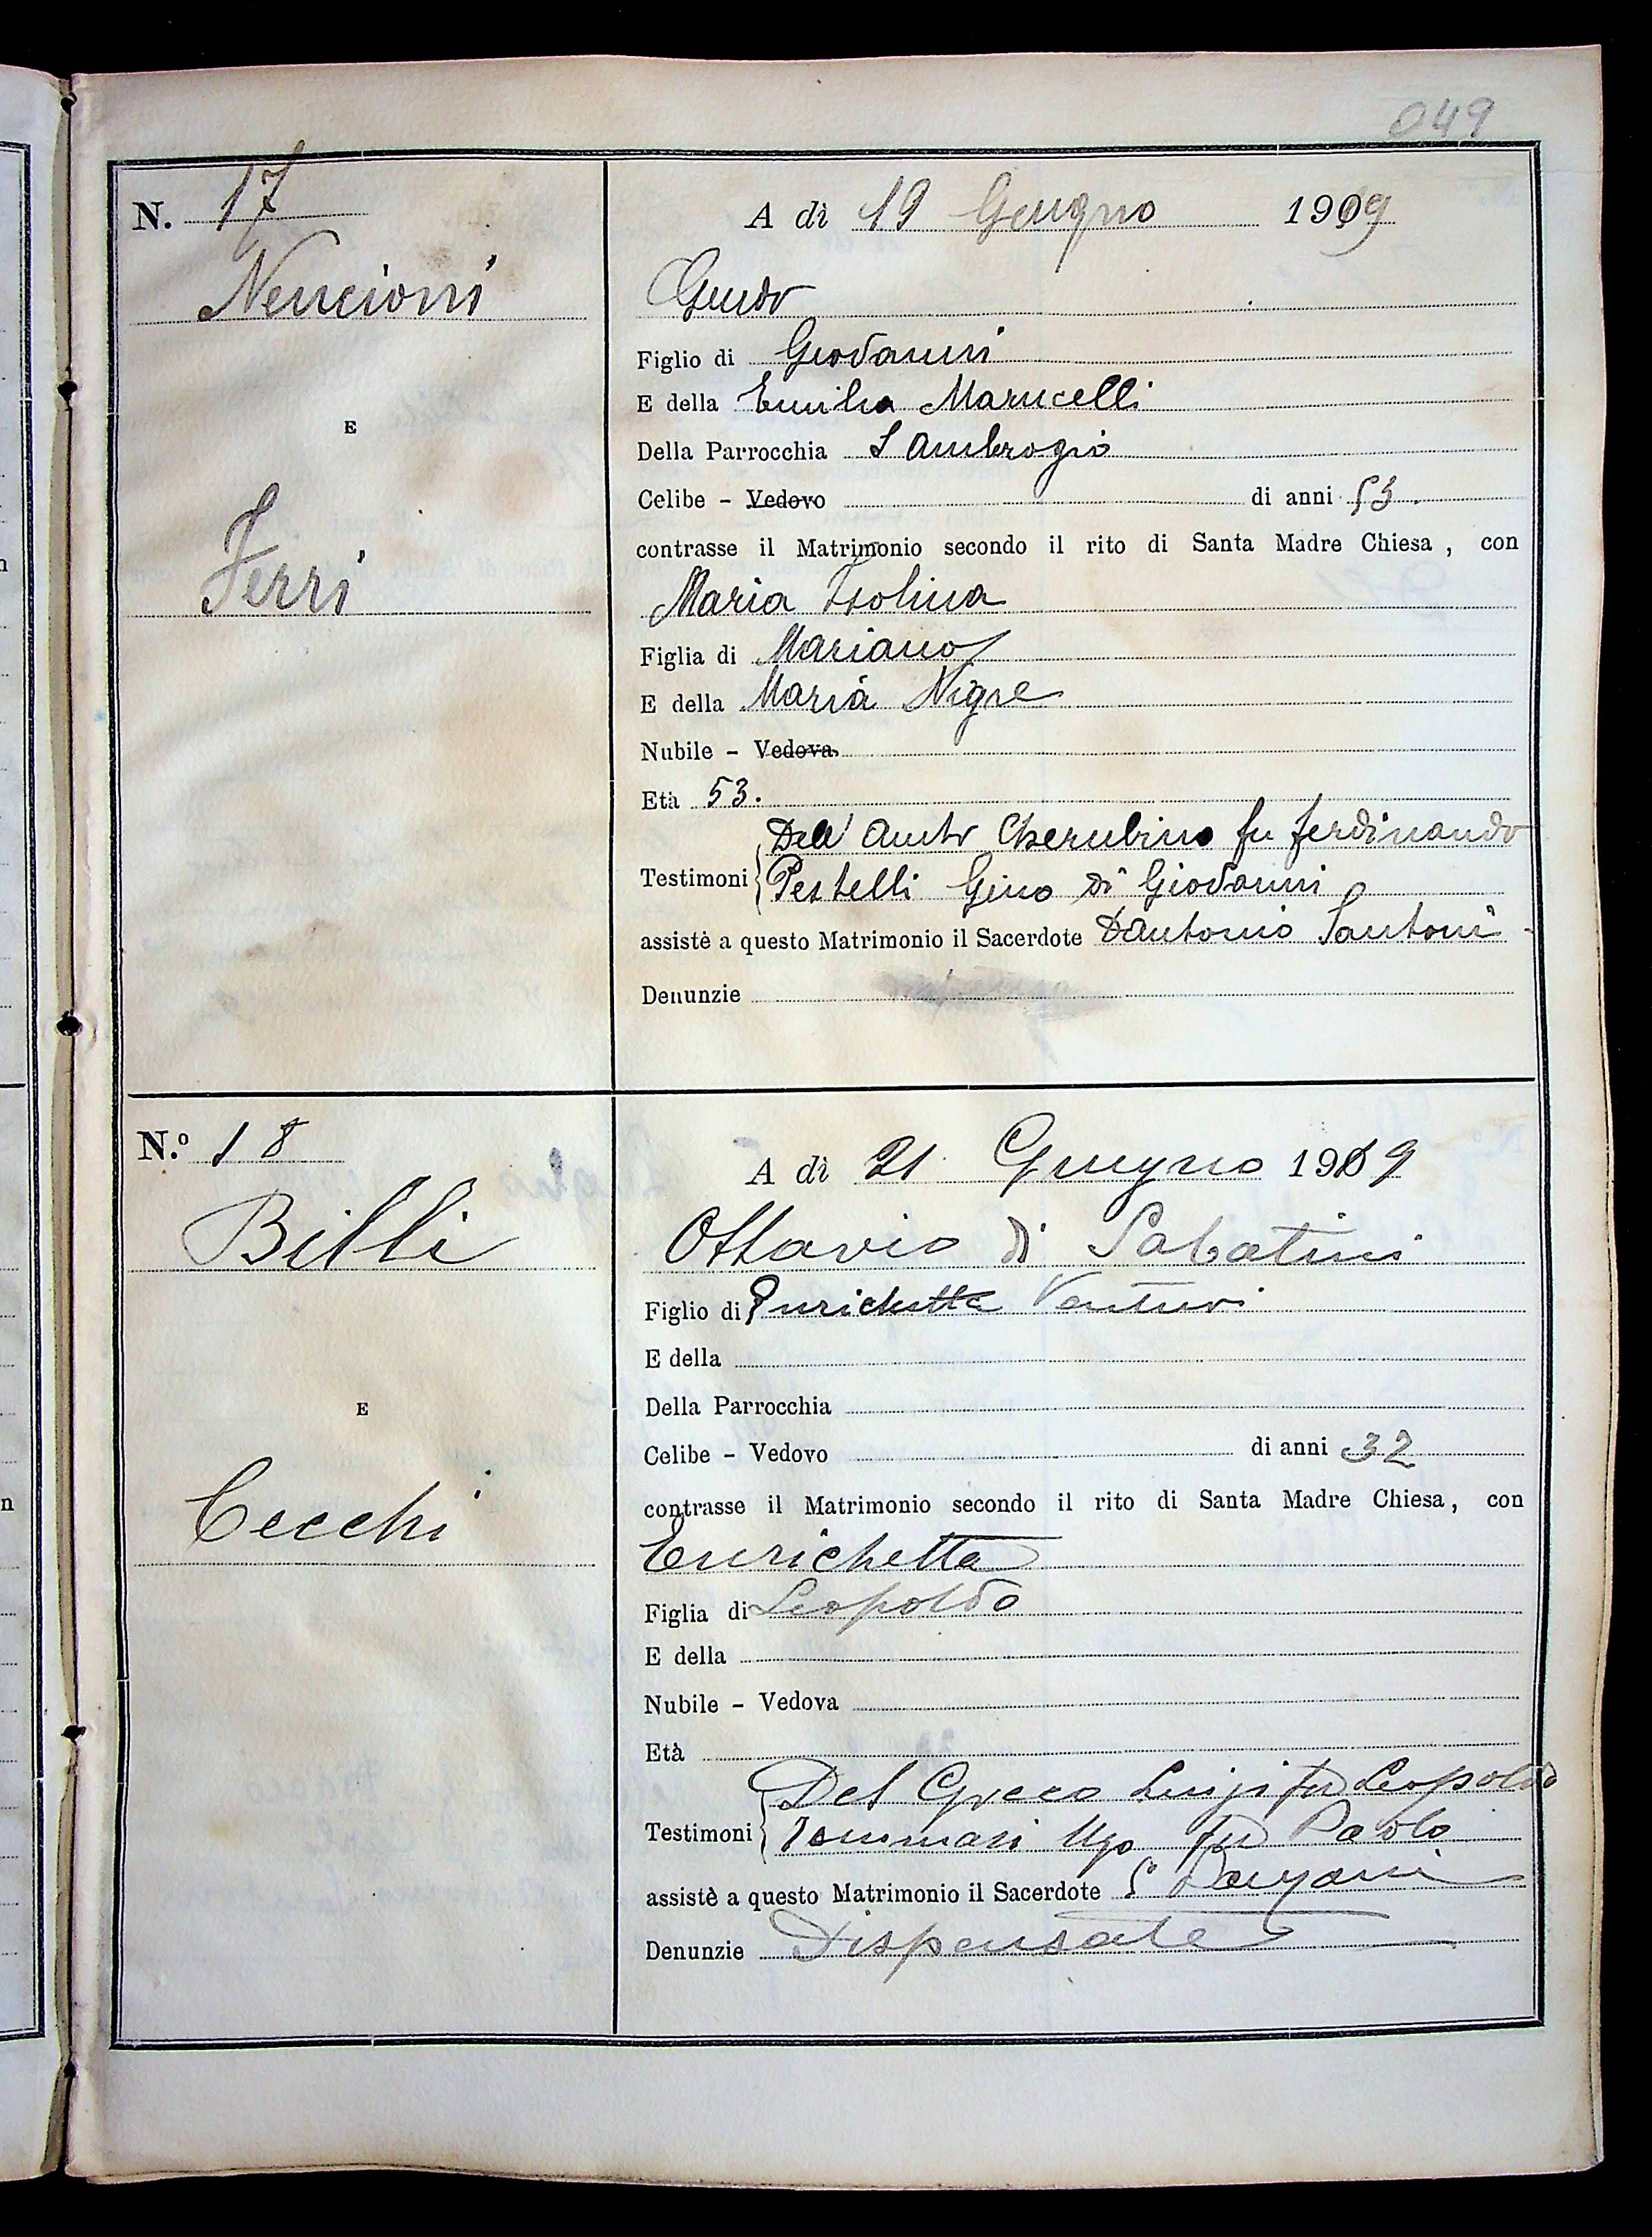 049
N. 17
A dì 19 Giugno 1919
Nencioni
E
Ferri
Guido
Figlio di Giovanni
E della Emilia Marucelli
Della Parrocchia S Ambrogio
Celibe - Vedovo di anni 53.
contrasse il Matrimonio secondo il rito di Santa Madre Chiesa, con
Maria Isolina
Figlia di Mariano
E della Maria Nigre
Nubile - Vedova
Età 53.
Dell' Amtr Cherubino fu Ferdinando
Testimoni Pestelli Gino di Giovanni
assistè a questo Matrimonio il Sacerdote D Antonio Santoni
Denunzie
N.º 18
A dì 21 Giugno 1919
Billi
E
Cecchi
Ottavio di Sabatini
Figlio di Enrichetta Venturi
E della
Della Parrocchia
Celibe - Vedovo di anni 32
contrasse il Matrimonio secondo il rito di Santa Madre Chiesa, con
Enrichetta
Figlia di Leopoldo
E della
Nubile - Vedova
Età
Del Greco Luigi fu Leopoldo
Testimoni Tommasi Ugo fu Paolo
assistè a questo Matrimonio il Sacerdote
Denunzie Dispensate